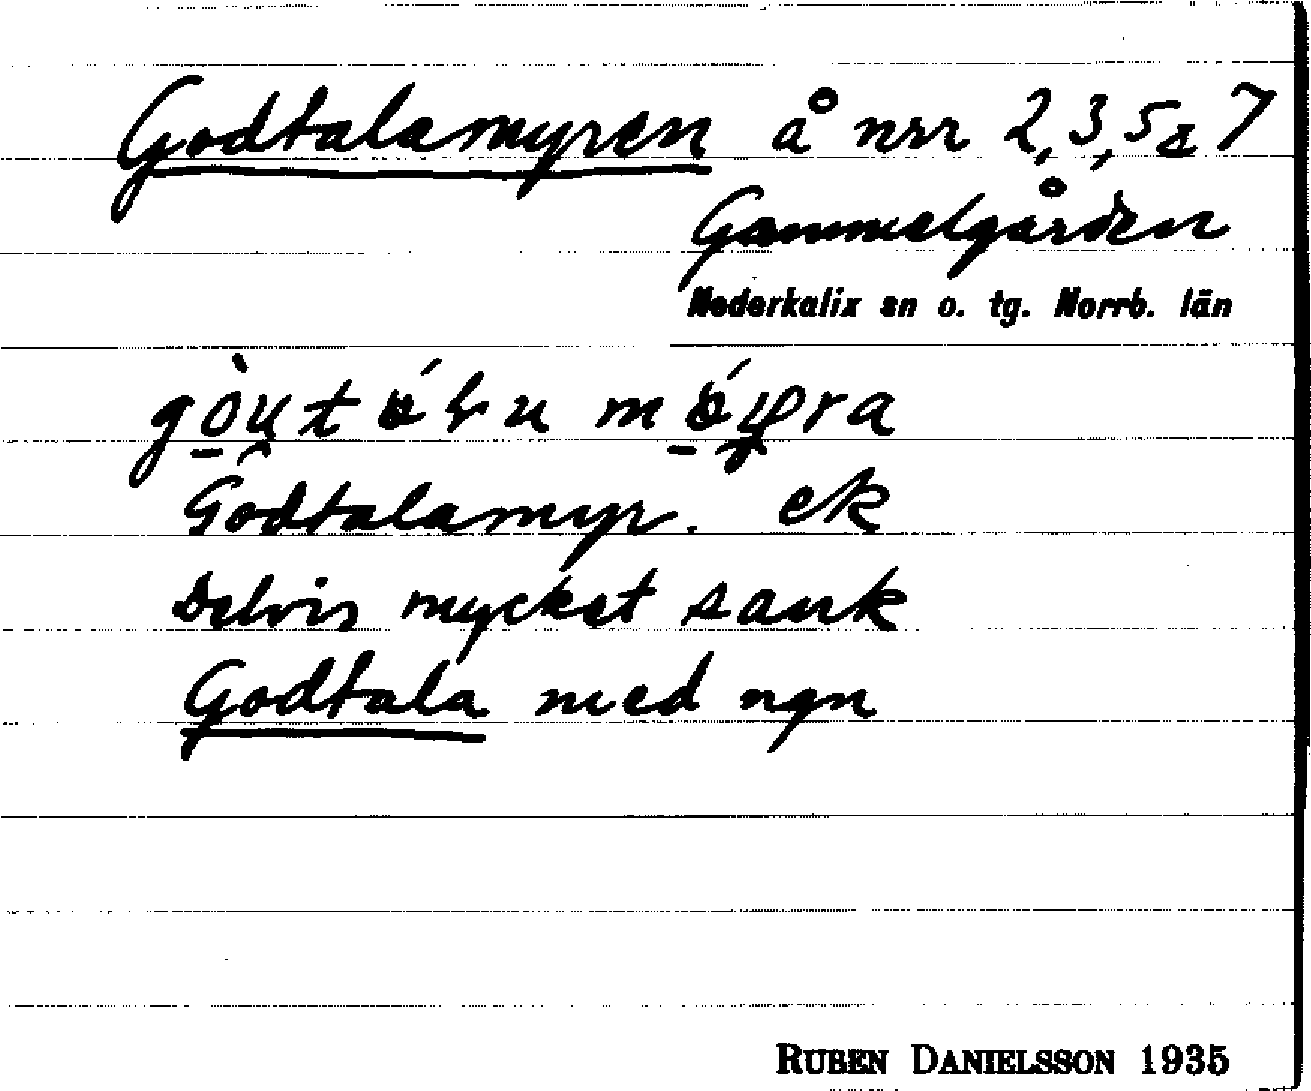 Godtalamyren å nrr 2, 3, 5 & 7
Gammelgården
Nederkalix sn o. tg. Norrb. län
Godtalamyr. ek
Delvis mycket sank
Godtala med ngn
RUBEN DANIELSSON 1935